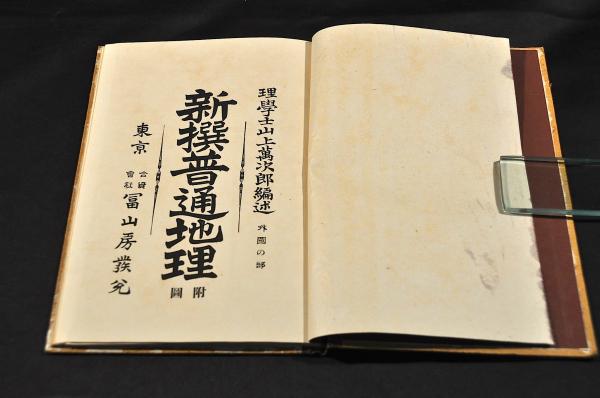 理學士山上萬次郎編述 外國の部
新撰普通地理
附圖
東京 合資會社 冨山房發兌